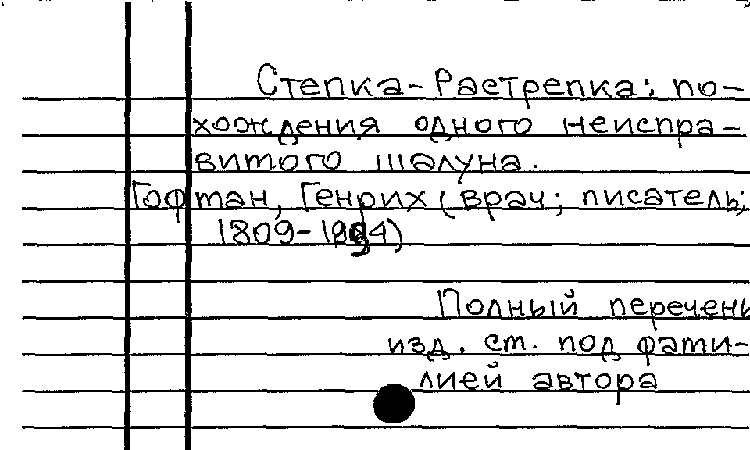 Степка-Растрепка: по-
хождения одного неиспра-
витого шалуна.
Гофман, Генрих (врач; писатель;
1809-1894)
Полный перечень
изд. см. под фами-
лией автора